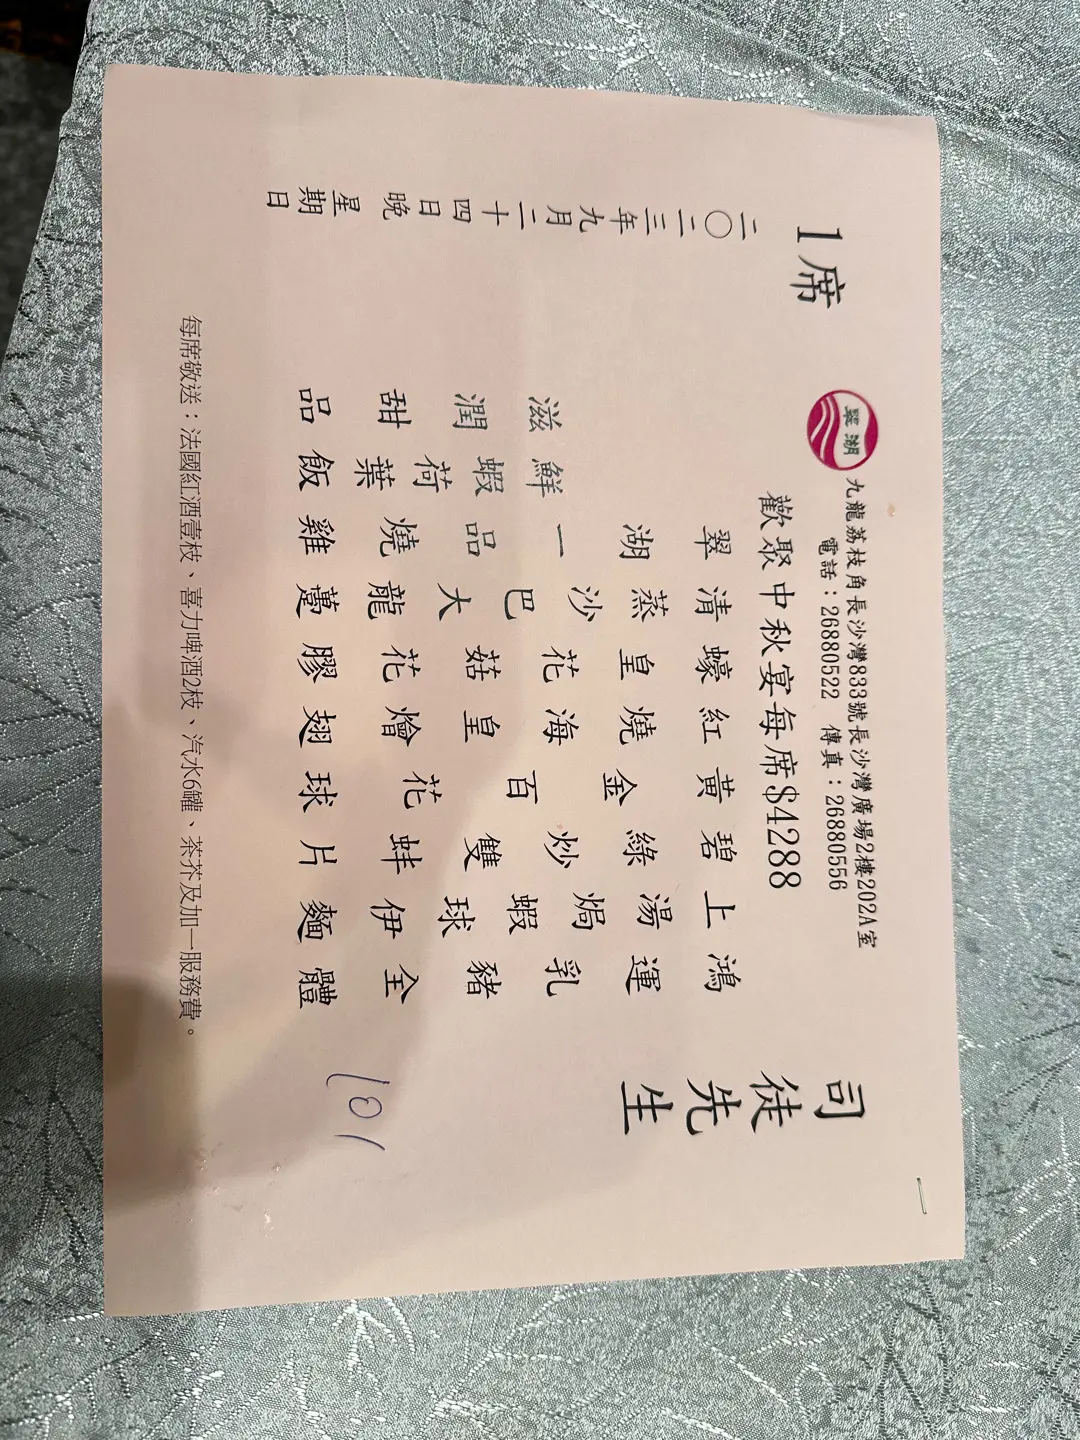 翠湖
九龍荔枝角長沙灣833號長沙灣廣場2樓202A室
電話：26880522 傳真：26880556
歡聚中秋宴每席$4288
司徒先生
鴻運乳豬全體
上湯焗蝦球伊麵
碧綠炒雙蚌片
黃金百花球
紅燒海皇燴翅
蠔皇花菇花膠
清蒸沙巴大龍躉
翠湖一品燒雞
鮮蝦荷葉飯
滋潤甜品
1席
二〇二三年九月二十四日晚星期日
101
每席敬送：法國紅酒壹枝、喜力啤酒2枝、汽水6罐、茶芥及加一服務費。